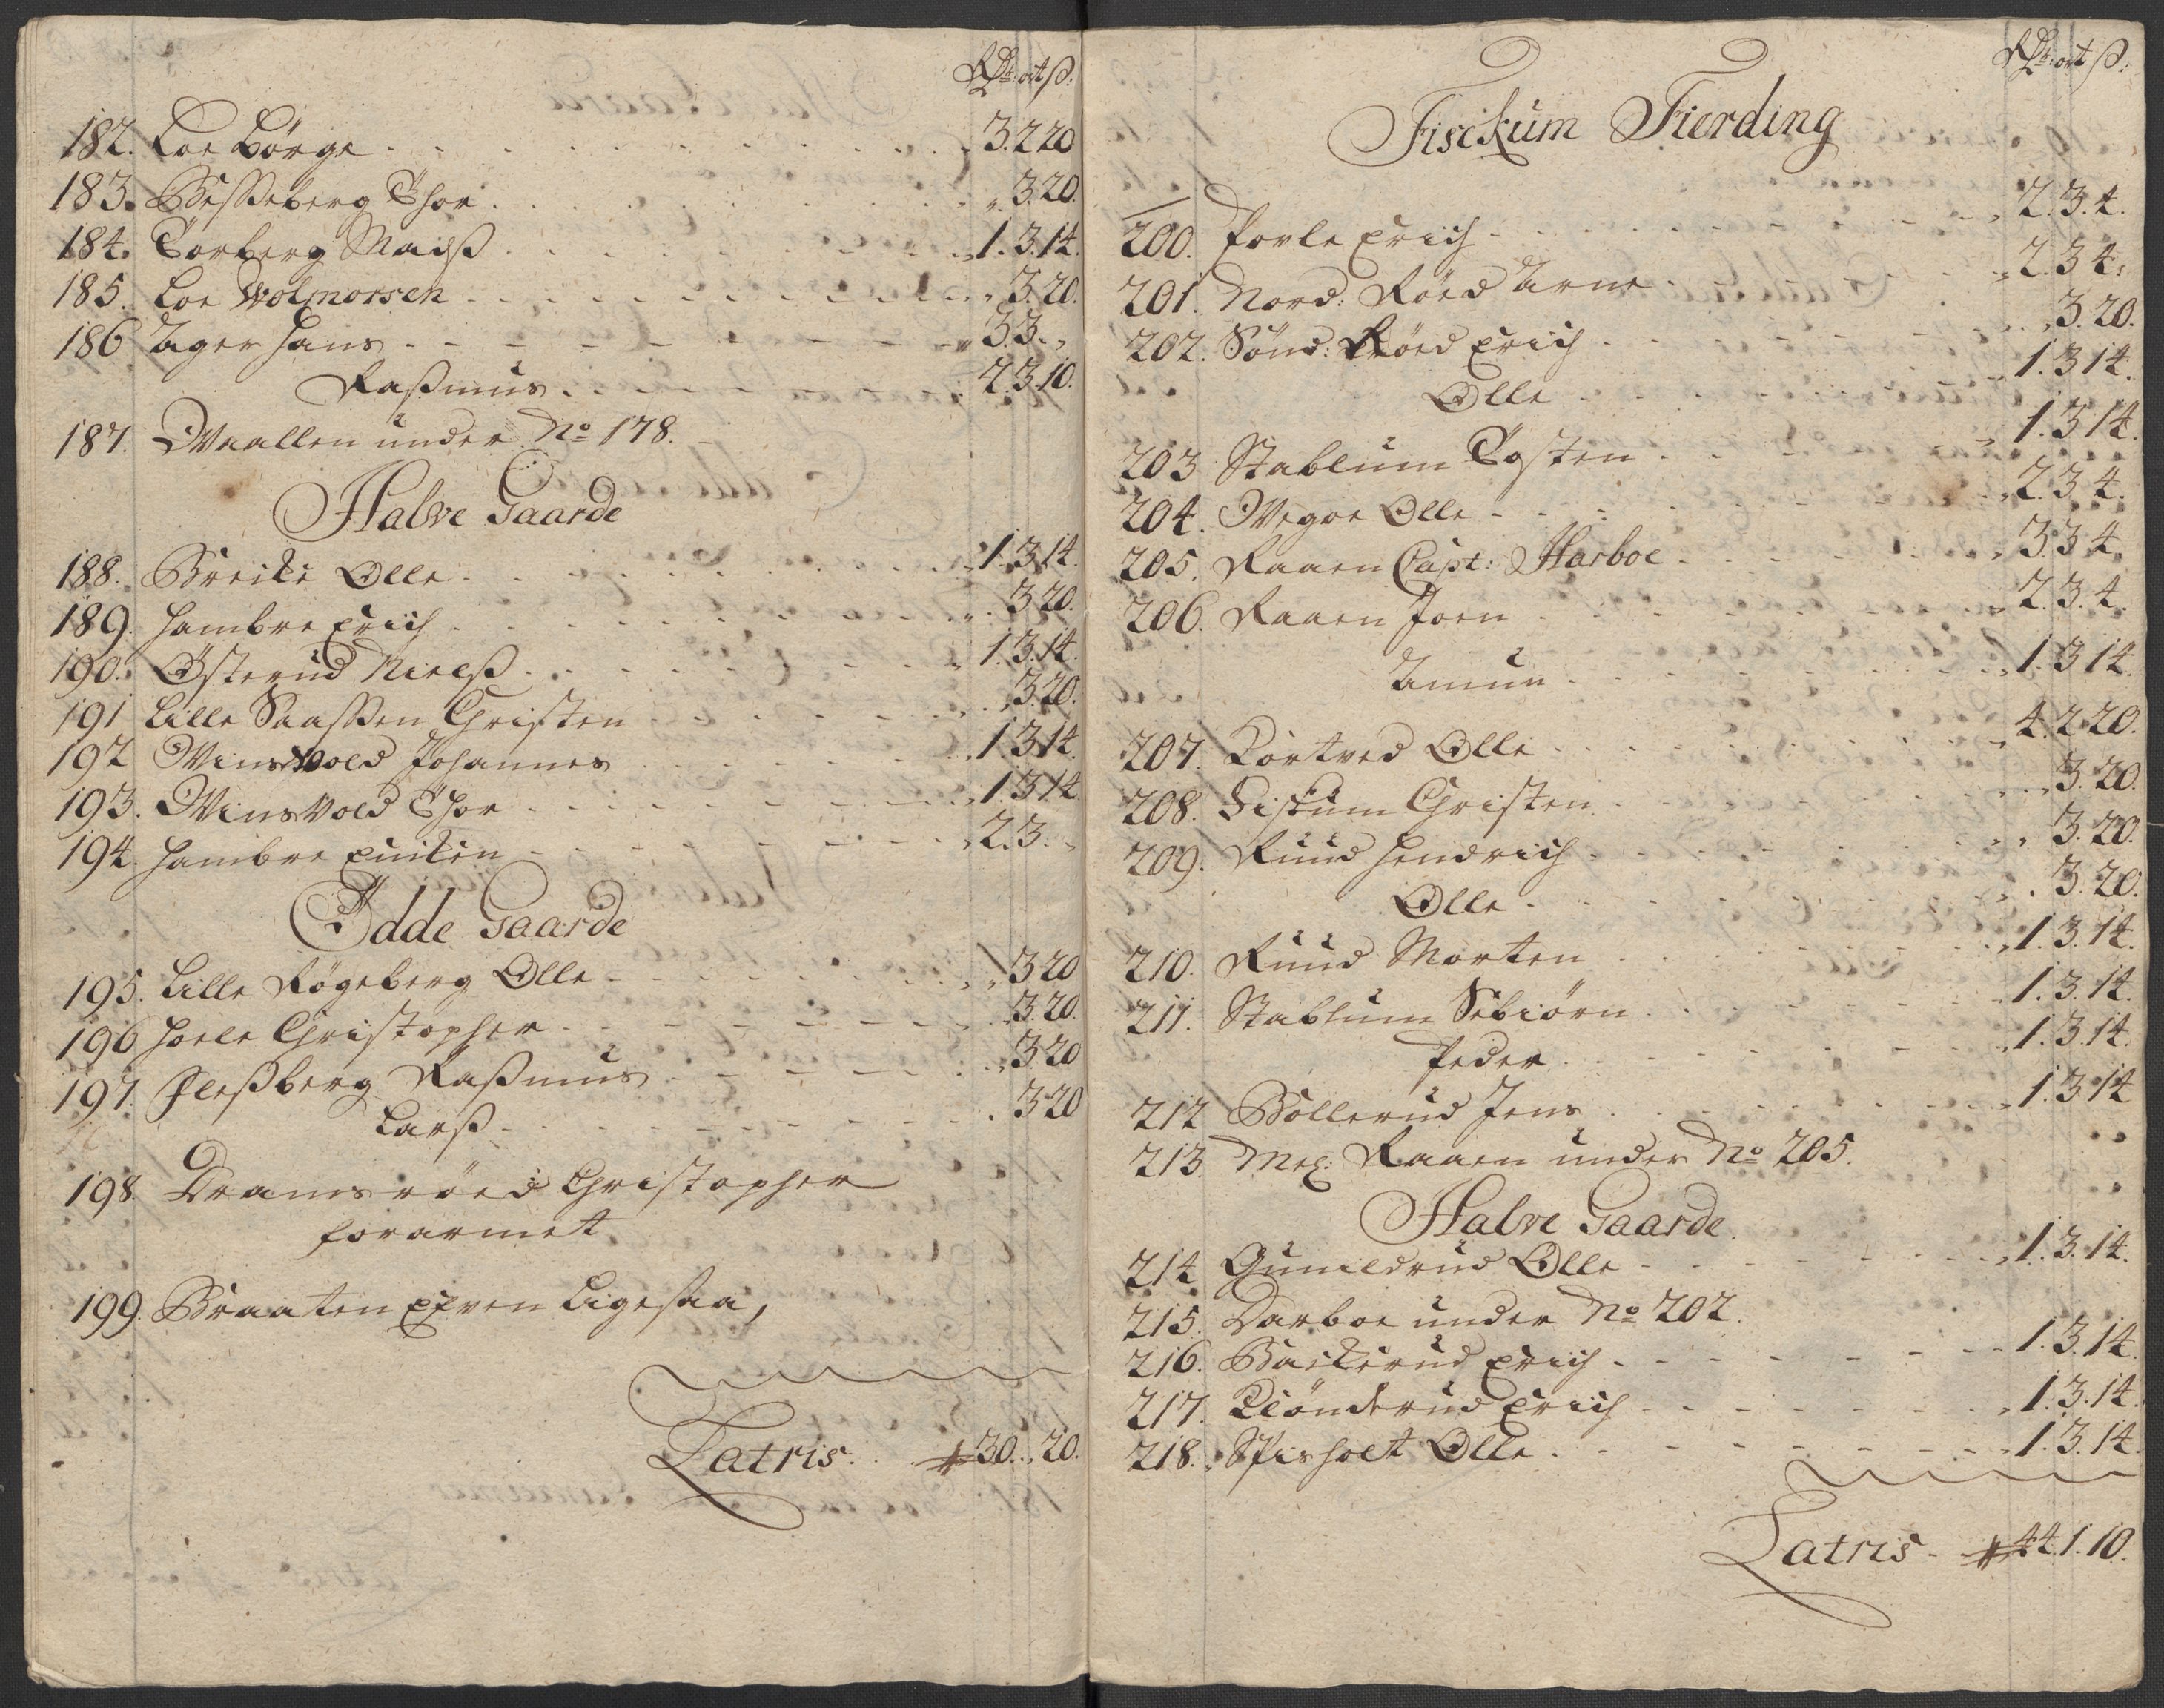 Rdr: ort ß:
182. Loe Börge 3.2.20
183. Besseberg Thor 3.20.
184. Torberg Madß 1.3.14.
185. Loe Wolmorsen 3.20.
186 Ager Hans 3.3.
Raßmus 2.3.10.
187. Waallen under No 178.
Halve Gaarde
188. Breche Olle 1.3.14.
189. Hambre Erich 3.20.
190. Österud Nielß 1.3.14.
191 Lille Saassen Christen 3.20.
192 Winsvold Johannes 1.3.14.
193. Winsvold Thor 1.3.14.
194. Hambre Enchen 2.3.
Ödde Gaarde
195. Lille Røgeberg Olle 3.20
196 Hoele Christopher 3.20.
197. Fleßberg Raßmus 3.20
Larß 3.20
198 Dramsröed Christopher
forarmet
199. Braaten Efven Ligesaa,
Latris 30..20.
Rdr: ort ß:
Fisckum Fierding
200. Povle Erich 2.3.4.
201. Nord: Röed Arne 2.3.4.
202. Sönd: Röed Erich 3.20.
Olle 1.3.14.
203 Stablum Tosten 1.3.14.
204. Wegoe Olle 2.3.4.
205. Raaen Capt: Harboe 3.3.4.
206. Raaen Joen 2.3.4.
Amun 1.3.14.
207. Kortved Olle 4.2.20.
208. Fiskum Christen 3.20.
209. Ruud Hendrich 3.20.
Olle 3.20.
210. Ruud Morten 1.3.14.
211. Stablum Sebiörn 1.3.14.
Peder 1.3.14.
212 Bollerud Jens 1.3.14
213 Mel: Raaen under No 205.
Halve Gaarde
214 Gunildrud Olle 1.3.14.
215. Darboe under No 202.
216. Backerud Erich 1.3.14.
217. Klönderud Erich 1.3.14.
218. Spisholt Olle 1.3.14.
Latris 44.1.10.